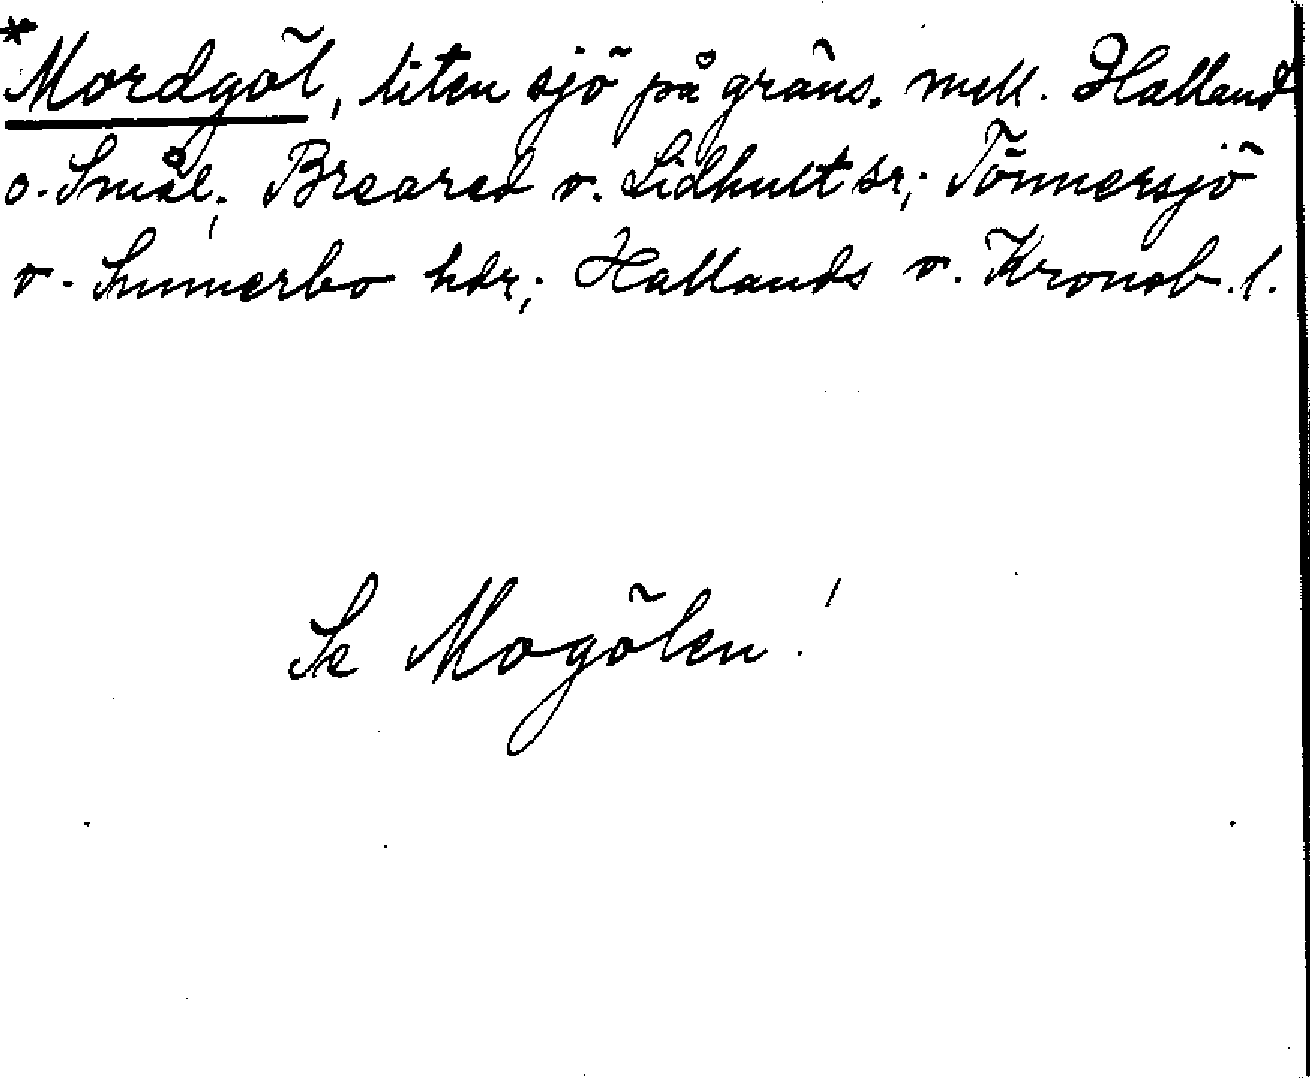 *Mordgöl, liten sjö på gräns. mell. Halland
o. Smål.; Breared o. Lidhult sr; Tönnersjö
o. Sunnerbo hdr; Hallands o. Kronob. l.
Se Mogölen!